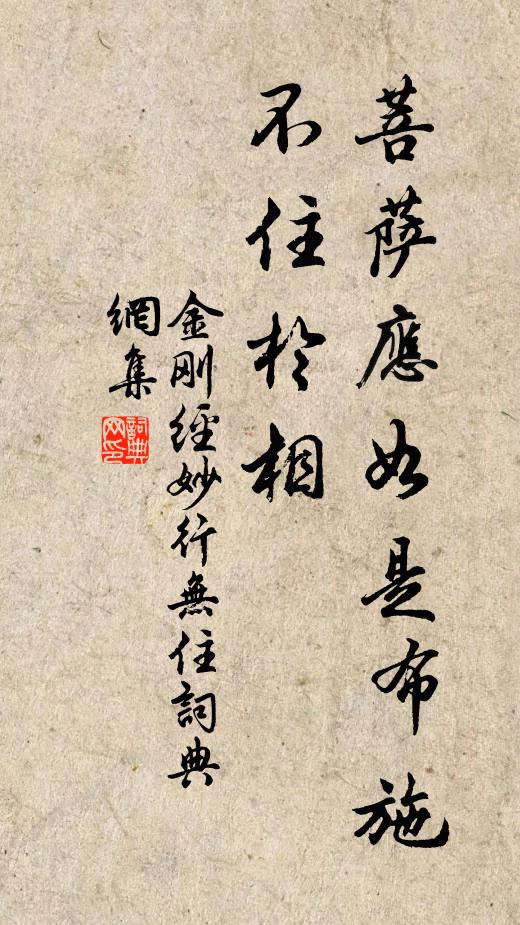 菩薩應如是布施
不住於相
金剛經妙行無住詞典
網集
詞典
网印